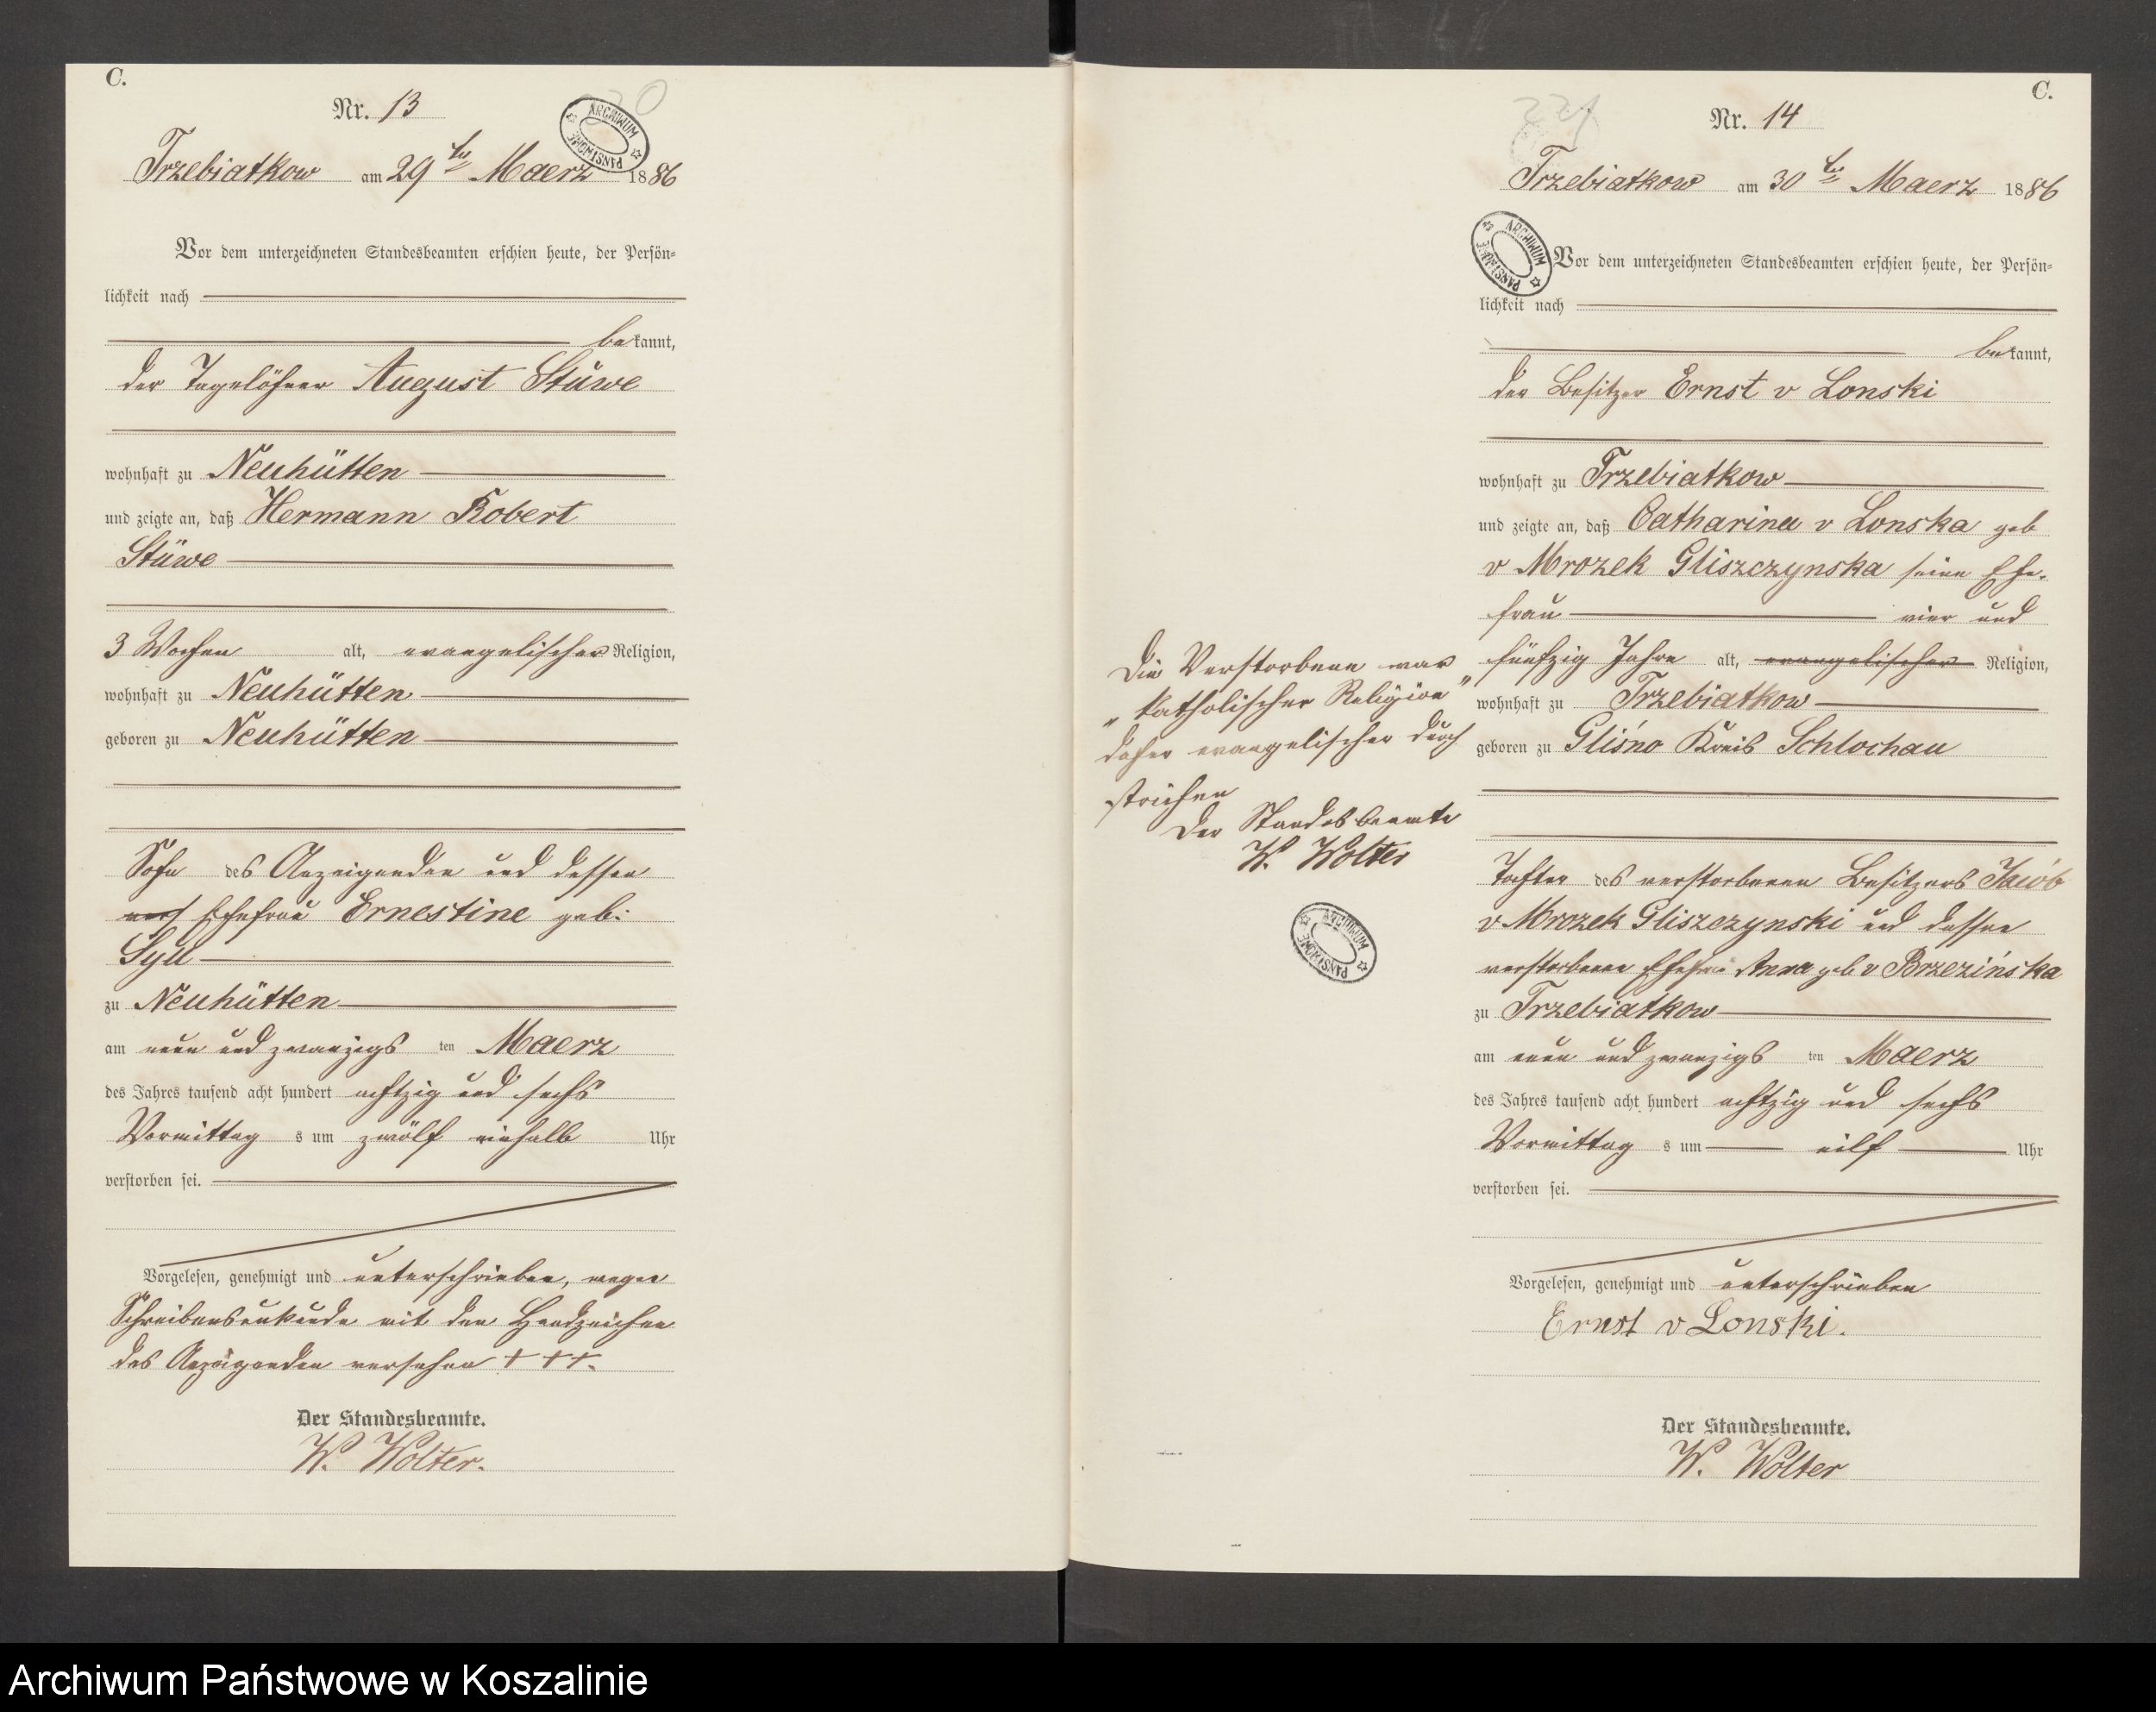 C.
Nr. 13
Trzebiatkow am 29ten Maerz 1886
Vor dem unterzeichneten Standesbeamten erschien heute, der Persön-
lichkeit nach
bekannt,
der Tagelöhner August Stüwe
wohnhaft zu Neuhütten
und zeigte an, daß Hermann Robert
Stüwe
3 Wochen alt, evangelischer Religion,
wohnhaft zu Neuhütten
geboren zu Neuhütten
Sohn des Anzeigenden und dessen
Ehefrau Ernestine geb:
zu Neuhütten
am neun und zwanzigs ten Maerz
des Jahres tausend acht hundert achtzig und sechs
Vormittag s um zwölf einhalb Uhr
verstorben sei.
Vorgelesen, genehmigt und unterschrieben, wegen
Schreibensunkunde mit den Handzeichen
des Anzeigenden versehen +++.
Der Standesbeamte.
W. Wolter.
ARCHIWUM PAŃSTWOWE
C.
221
Nr. 14
Trzebiatkow am 30ten Maerz 1886
ARCHIWUM PAŃSTWOWE
Vor dem unterzeichneten Standesbeamten erschien heute, der Persön-
lichkeit nach
bekannt,
der Besitzer Ernst v Lonski
wohnhaft zu Trzebiatkow
und zeigte an, daß Catharina v Lonska geb
v Mrozek Gliszczynska seine Ehe-
frau vier und
fünfzig Jahre alt, evangelischer Religion,
wohnhaft zu Trzebiatkow
geboren zu Gliśno Kreis Schlochau
Tochter des verstorbenen Besitzers Jacób
v Mrozek Gliszczynski und dessen
verstorbenen Ehefrau Anna geb v Brzezińska
zu Trzebiatkow
am neun und zwanzigs ten Maerz
des Jahres tausend acht hundert achtzig und sechs
Vormittag s um eilf Uhr
verstorben sei.
Vorgelesen, genehmigt und unterschrieben
Ernst v Lonski.
Der Standesbeamte.
W. Wolter
Die Verstorbene war
"katholischer Religion"
daher evangelischer durch
strichen
Der Standesbeamte
W. Wolter
ARCHIWUM PAŃSTWOWE
Archiwum Państwowe w Koszalinie